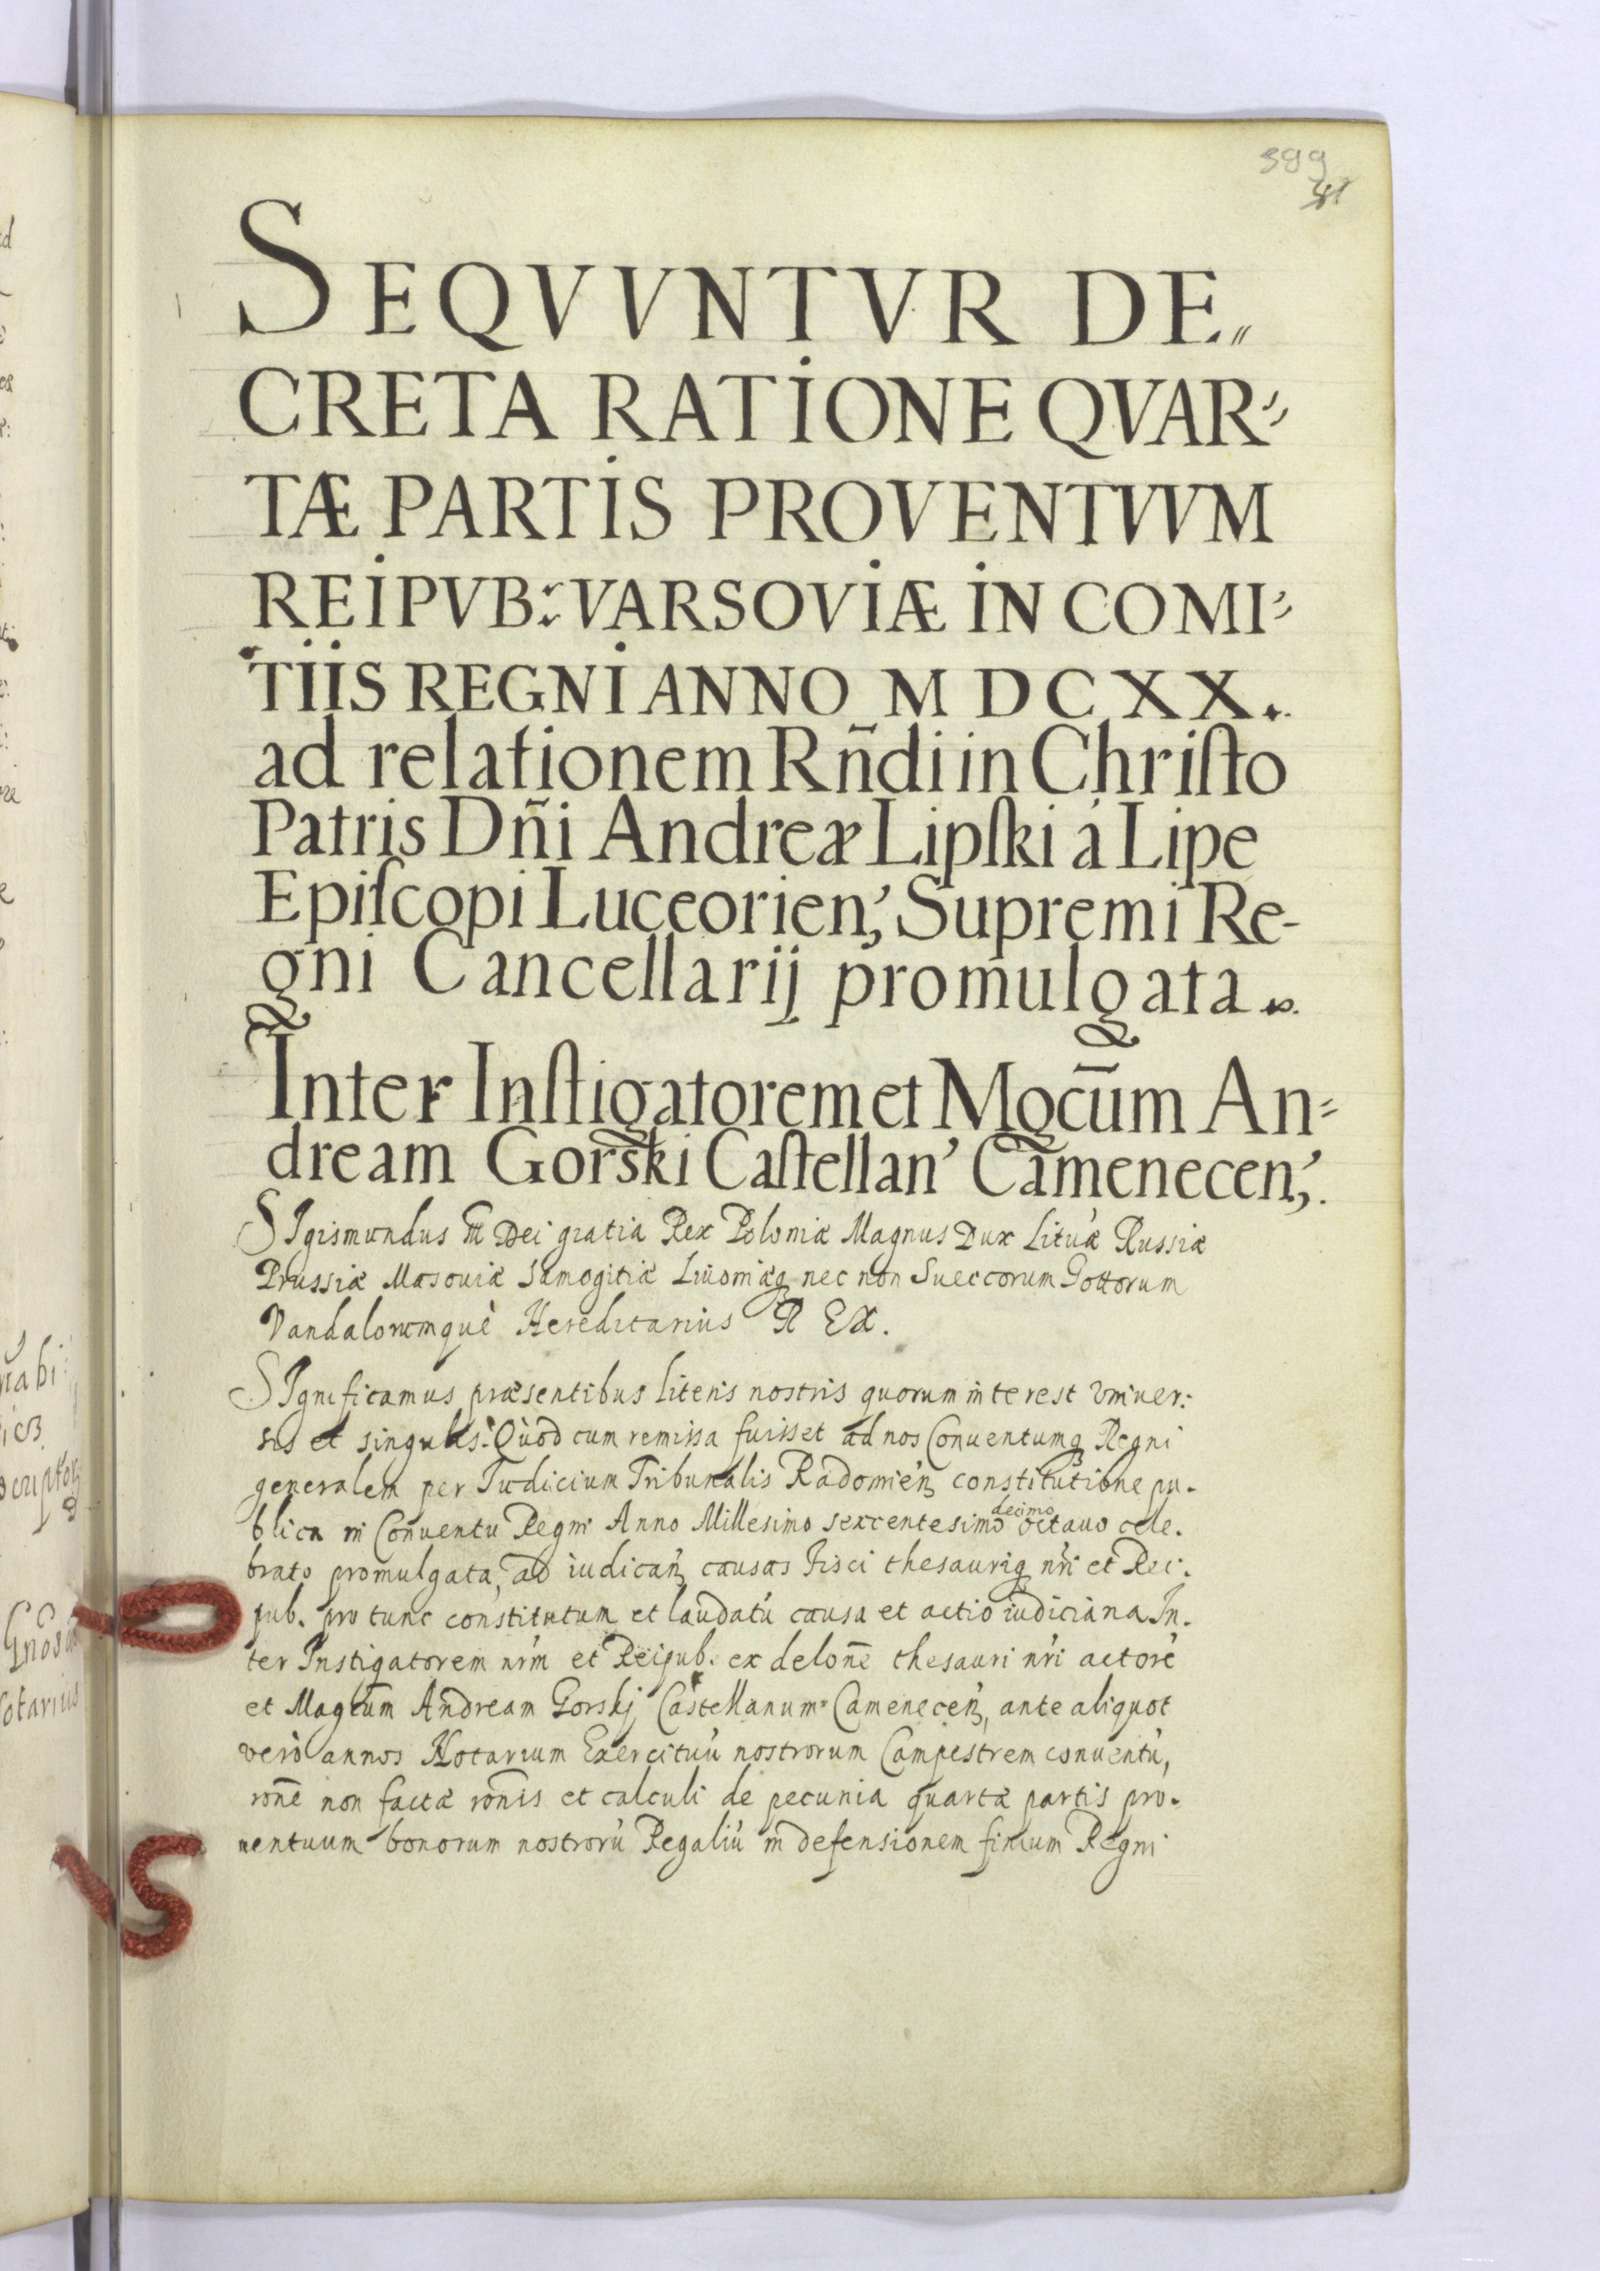 399
41
SEQVVNTVR DE„
CRETA RATIONE QVAR⸗
TÆ PARTIS PROVENTVVM
REIPVB: VARSOVIÆ IN COMI⸗
TIIS REGNI ANNO M D C X X.
ad relationem Rñdi in Chriſto
Patris Dñi Andreæ Lipſki á Lipe
Epiſcopi Luceorien̓, Supremi Re-
gni Cancellarij promulgata
Inter Inſtigatorem et Mgcūm An⸗
dream Gorski Caſtellan̓ Camenecen̓.
SIgismundus III Dei gratia Rex Poloniæ Magnus Dux Lituæ Russiæ
Prussiæ Masouiæ Samogitiæ Liuoniæq nec non Sueccorum Gottorum
Vandalorumquè Hereditarius REX.
SIgnificamus præsentibus literis nostris quorum interest vniuer:
sis et singulis: Quòd cum remissa fuisset ad nos Conuentumq Regni
generalem per Iudicium Tribunalis Radomień constitutione pu-
blica in Conuentu Regni Anno Millesimo sexcentesimo decimo octauo cele-
brato promulgata, ad iudicań causas fisci thesauriq nr̃i et Rei-
pub. pro tunc constitutum et laudatū causa et actio iudiciaria In-
ter Instigatorem nr̃m et Reipub. ex delon̄e thesauri nr̃i actorē
et Magcūm Andream Gorskj Castellanum Camenecen̄, ante aliquot
verò annos Notarium Exercituū nostrorum Campestrem conuentū,
ron̄e non factæ ron̄is et calculi de pecunia quartæ partis pro-
uentuum bonorum nostrorū Regaliū in defensionem finium Regni